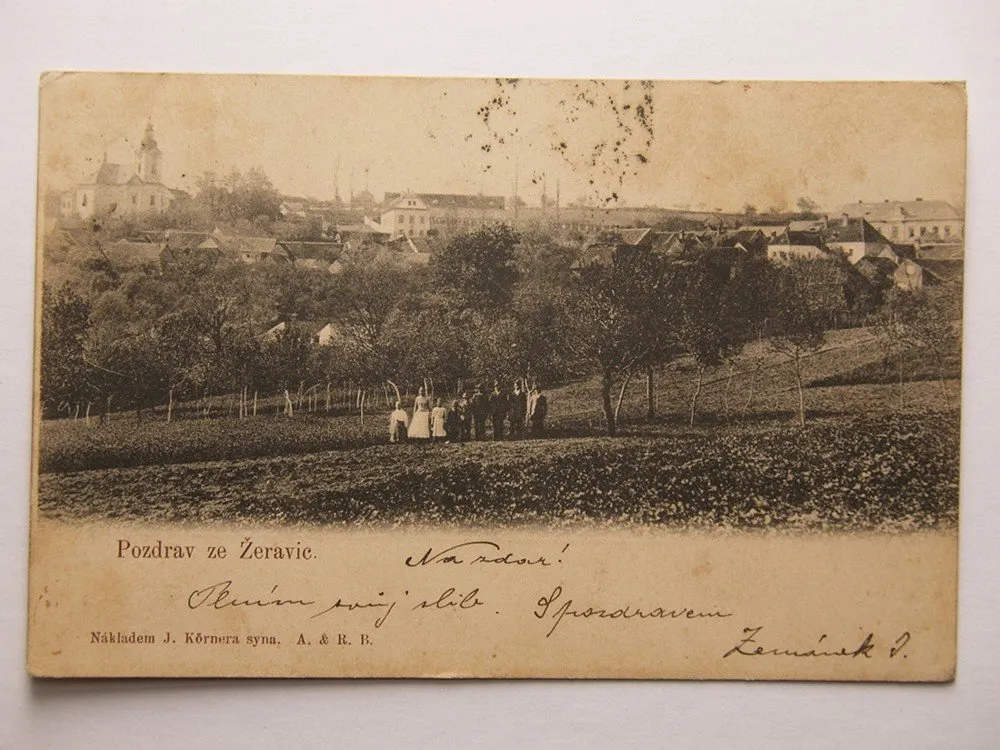 Pozdrav ze Žeravic.
Na zdar!
Plním svůj slib. S pozdravem
Nákladem J. Körnera syna. A. & R. B.
Zemánek J.